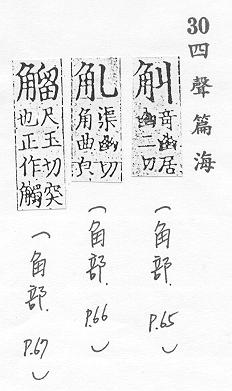 30
四聲篇海
音幽居
幽二切
（角部 P.65）
渠幽切
角曲皃
（角部 P.66）
尺玉切突
也正作觸
（角部 P.67）